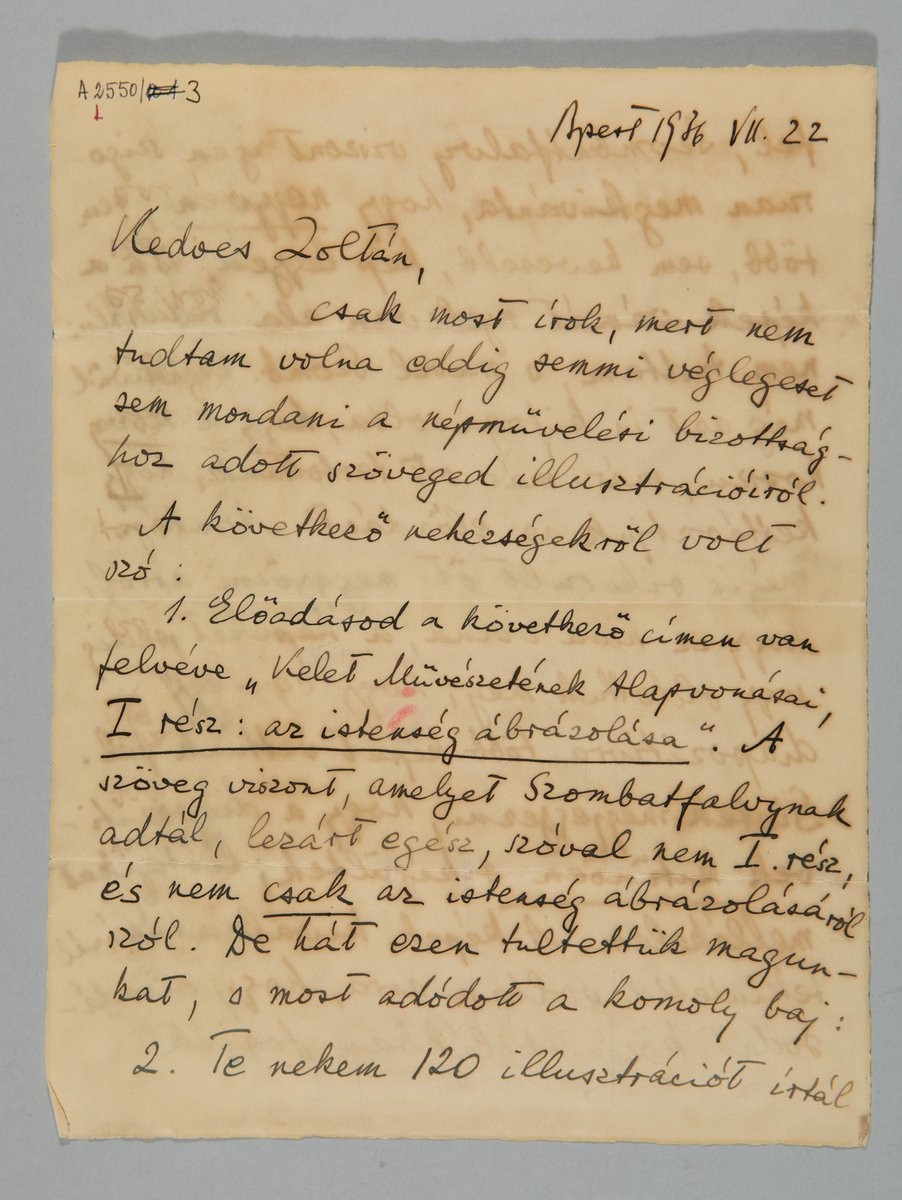 A 2550/3
1
Bpest 1936 VII. 22
Kedves Zoltán,
csak most írok, mert nem
tudtam volna eddig semmi véglegeset
sem mondani a népmüvelési bizottság-
hoz adott szöveged illusztrációiról.
A következő nehézségekről volt
szó :
1. Előadásod a következő címen van
felvéve „Kelet Művészetének Alapvonásai,
I rész : az istenség ábrázolása". A
szöveg viszont, amelyet Szombatfalvynak
adtál, lezárt egész, szóval nem I. rész,
és nem csak az istenség ábrázolásáról
szól. De hát ezen tultettük magun-
kat, s most adódott a komoly baj :
2. Te nekem 120 illusztrációt írtál